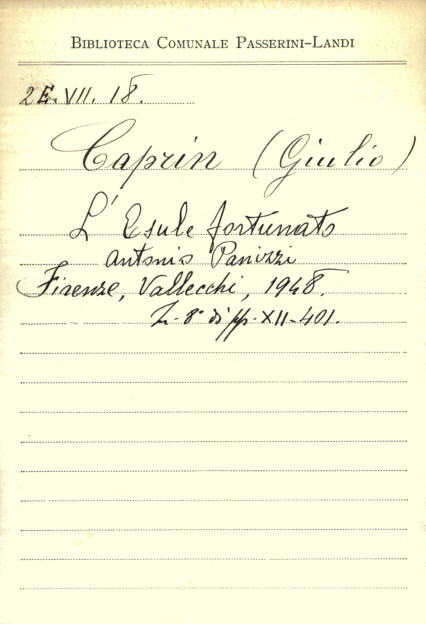 BIBLIOTECA COMUNALE PASSERINI-LANDI
2E. VII. 18.
Caprin (Giulio)
L' Esule fortunato
Antonio Panizzi
Firenze, Vallecchi, 1948.
8° di pp. XII-401.